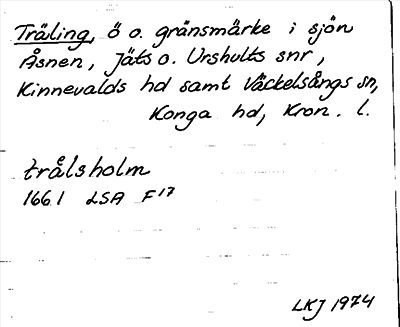 Träling, ö o. gränsmärke i sjön
Åsnen, Jäts o. Urshults snr,
Kinnevalds hd samt Väckelsångs sn,
Konga hd, Kron. l.
trålsholm
1661 LSA F17
LKJ 1974